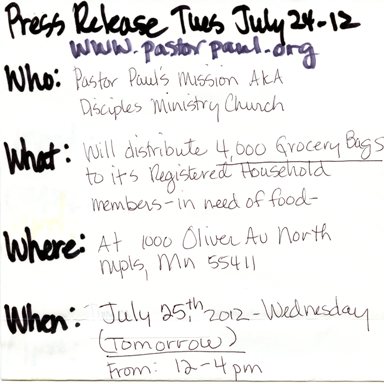 Press Release Tues July 24-12
www.pastorpaul.org
Who: Pastor Paul's Mission AKA
Disciples Ministry Church
What: Will distribute 4,000 Grocery Bags
to it's Registered Household
members-in need of food-
Where: At 1000 Oliver Av North
mpls, Mn 55411
When: July 25,th 2012-Wednesday
(Tomorrow)
From: 12-4pm